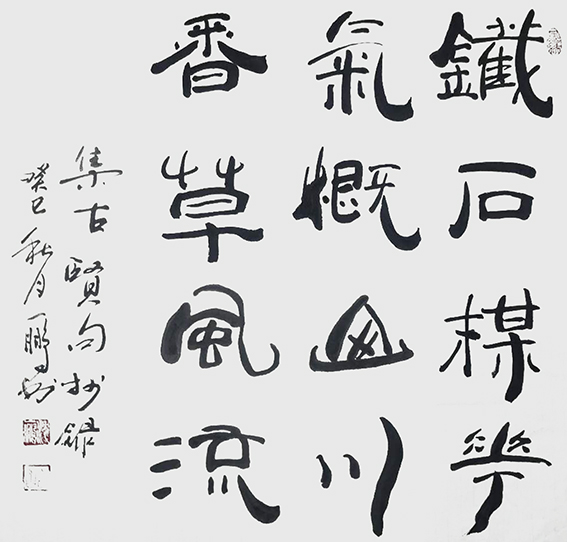 鐵石楳華
氣概山川
香草風流
集古賢句抄錄
癸巳秋月一鵬